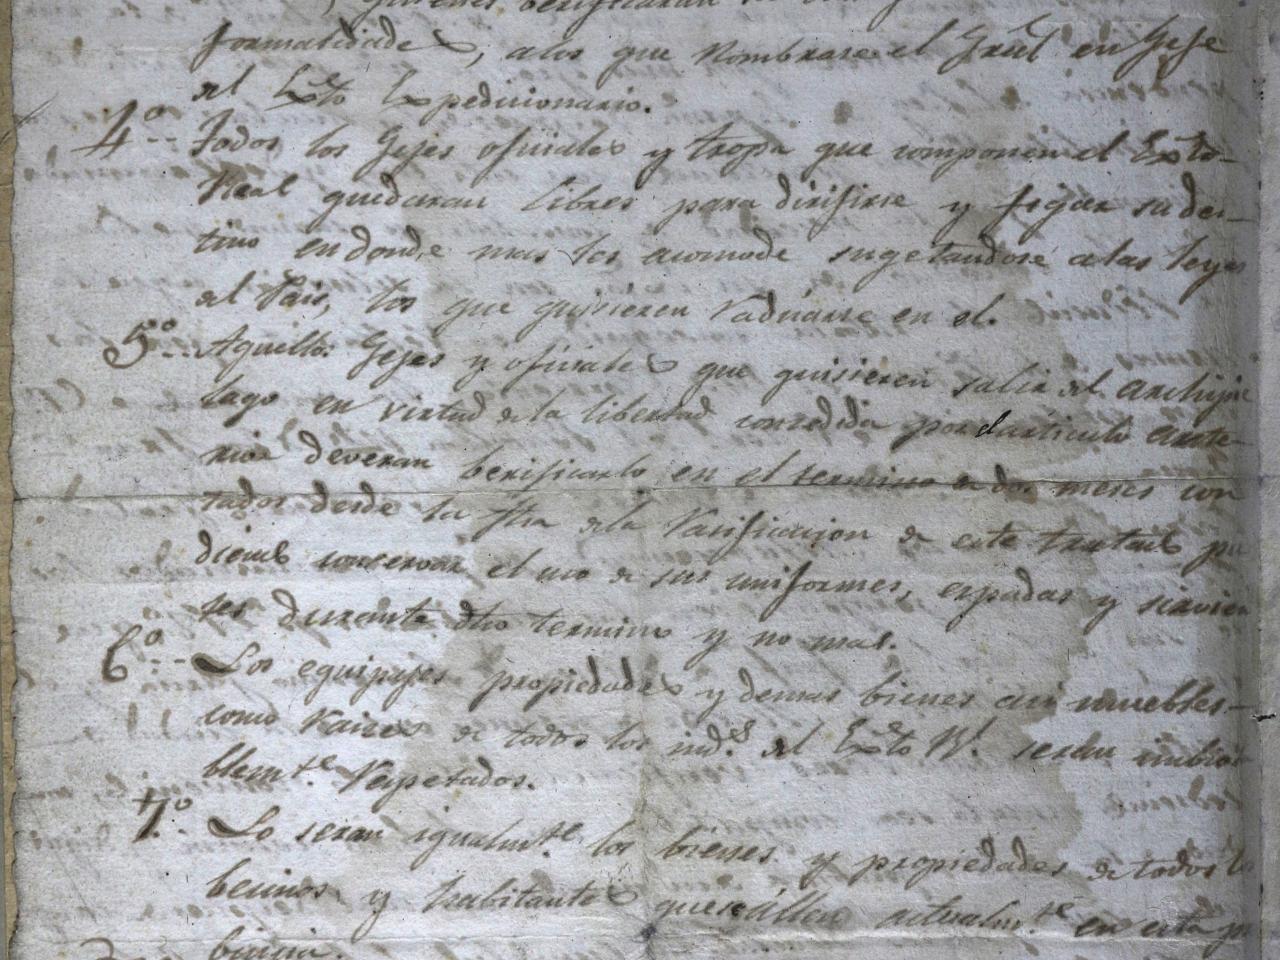 quienes berificaran
formalidades, alos que nombrare el Gral en Gefe
del Exto Expedicionario.
4º-- Todos los Gefes ofiiales y tropa que componen el Exto-
Real quedaran libres para dirifirse y fijar su des-
tino en donde mas les acomode sugetandose a las leyes
del Pais, los que quisieren radicarse en el.
5º-- Aquellos Gefes y ofiiales que quisieren salir del archipie
lago en virtud de la libertad concedida por el articulo ante-
rior deveran berificarlo en el termino de dos meses con
tados desde la fha de la Ratificacion de este tratado pu
diendo conservar el uso de sus uniformes, espadas y sirvien
tes durante dho termino y no mas.
6º-- Los equipajes propiedades y demas bienes asi muebles-
como raices de todos los inds. del Exto Rl. seran inbiola
blemte Respetados.
7º- Lo seran igualmte. los bienes y propiedades de todos lo
becinos y habitantes que se allen actualmte en esta pro
bincia.